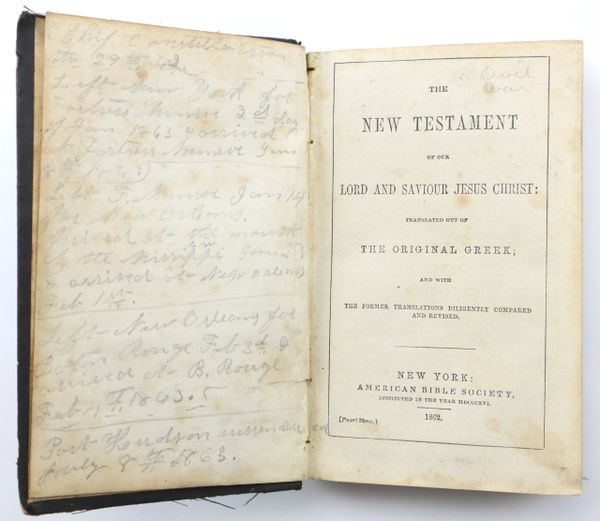 Ship Constellation
the 29th 62
Left New York for
Fortress Munroe 3d day
of Jany 1863 & arrived
at Fortress Munroe Jany
1863
Left F. Munroe Jan 14
for New Orleans.
Arrived at the mouth
of the Missippi Jan 29
& arrived at New Orleans
Feb 1st.
Left New Orleans for
Baton Rouge Feb 3d &
arrived at B. Rouge
Feb 1863.
Port Hudson surrendered
July 8th 1863.
Civil
War
THE
NEW TESTAMENT
OF OUR
LORD AND SAVIOUR JESUS CHRIST:
TRANSLATED OUT OF
THE ORIGINAL GREEK;
AND WITH
THE FORMER TRANSLATIONS DILIGENTLY COMPARED
AND REVISED.
NEW YORK:
AMERICAN BIBLE SOCIETY,
INSTITUTED IN THE YEAR MDCCCXVI.
1862.
[Pearl 32mo.]